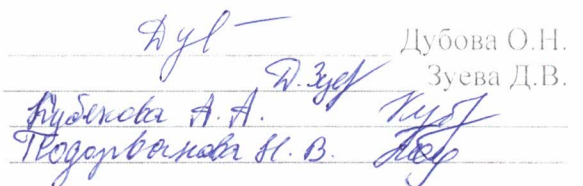 Дуб Дубова О.Н.
Д.Зуев Зуева Д.В.
Кубекова А. А. Куб
Подорванова Н. В. Под